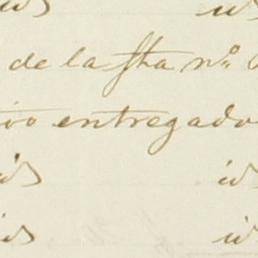 id id
de la fha nº
entregado
id id
id id